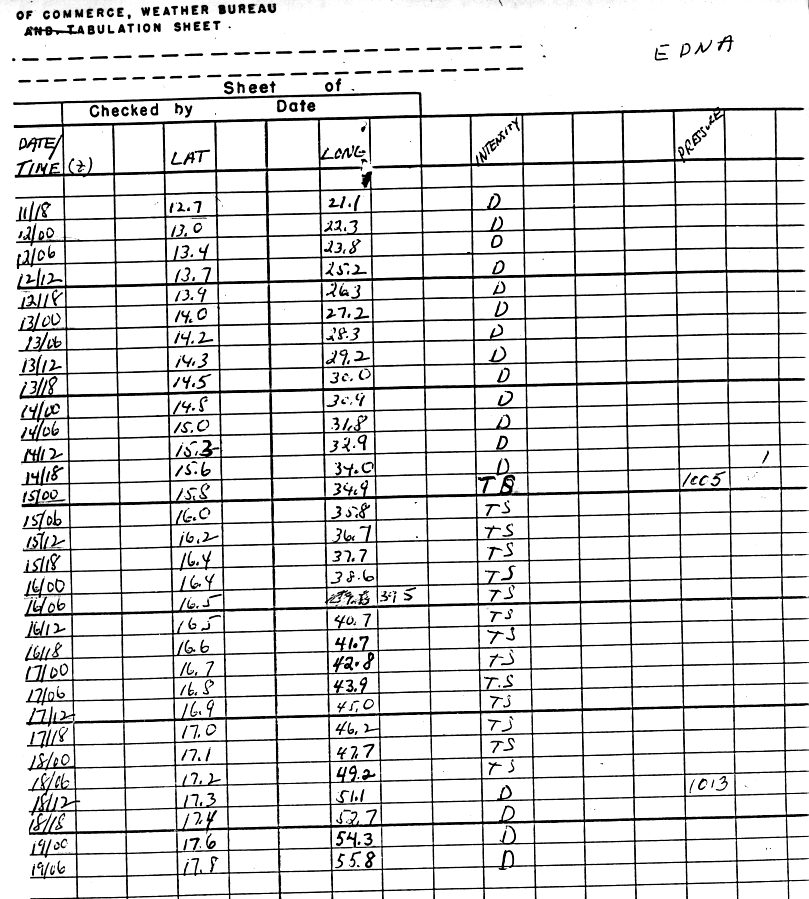 OF COMMERCE, WEATHER BUREAU
AND TABULATION SHEET.
EDNA
Sheet of
Checked by Date
DATE/TIME (Z) LAT LONG INTENSITY PRESSURE
11/18 12.7 21.1 D
12/00 13.0 22.3 D
12/06 13.4 23.8 D
12/12 13.7 25.2 D
12/18 13.9 26.3 D
13/00 14.0 27.2 D
13/06 14.2 28.3 D
13/12 14.3 29.2 D
13/18 14.5 30.0 D
14/00 14.8 30.9 D
14/06 15.0 31.8 D
14/12 15.3 32.9 D
14/18 15.6 34.0 D
15/00 15.8 34.9 TS 1005
15/06 16.0 35.8 TS
15/12 16.2 36.7 TS
15/18 16.4 37.7 TS
16/00 16.4 38.6 TS
16/06 16.5 39.5 TS
16/12 16.5 40.7 TS
16/18 16.6 41.7 TS
17/00 16.7 42.8 TS
17/06 16.8 43.9 T.S
17/12 16.9 45.0 TS
17/18 17.0 46.2 TS
18/00 17.1 47.7 TS
18/06 17.2 49.2 TS
18/12 17.3 51.1 D 1013
18/18 17.4 52.7 D
19/00 17.6 54.3 D
19/06 17.8 55.8 D